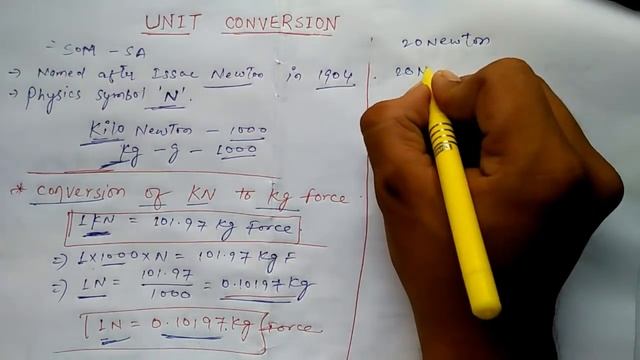 UNIT CONVERSION
= SOM - SA
→ Named after Issac Newton in 1904.
→ Physics symbol 'N'.
Kilo Newton - 1000
Kg - g - 1000
* conversion of KN to kg force
1KN = 101.97 kg force
=> 1x1000xN = 101.97 Kg F
=> 1N = 101.97/1000 = 0.10197 Kg
1N = 0.10197 Kg force
20 Newton
20 N